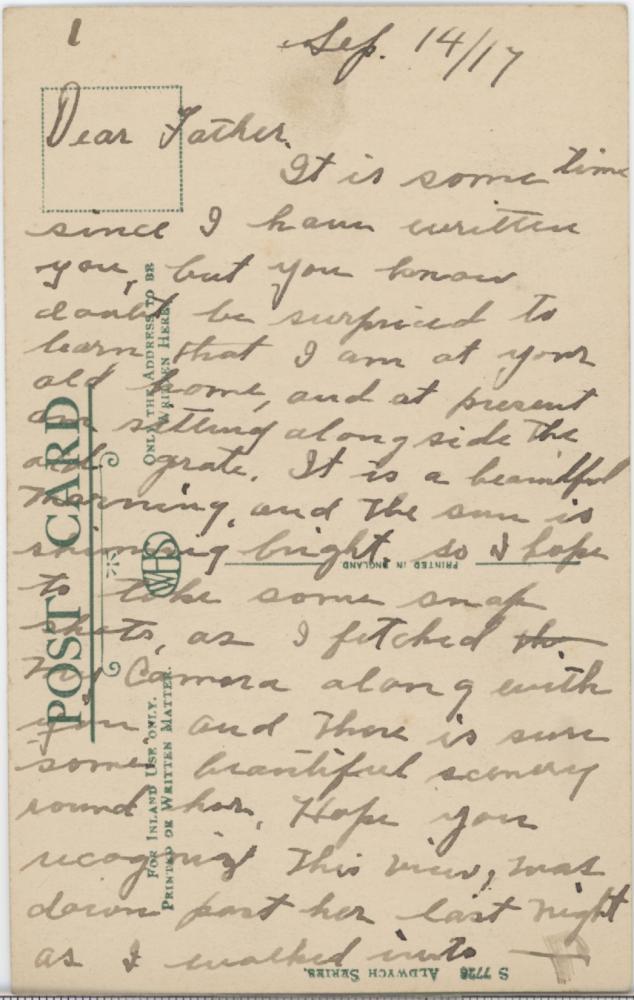 1
Sep. 14/17
Dear Father.
It is some time
since I have written
you, but you know
doubt be surprised to
learn that I am at your
old home, and at present
am setting alongside the
old grate. It is a beautiful
morning, and the sun is
shinning bright, so I hope
to take some snap
shots, as I fetched
my Camera along with
and there is sure
some beautiful scenery
round her. Hope you
recognize this view, was
down past her last night
as I walked into
POST CARD
ONLY THE ADDRESS TO BE
WRITTEN HERE.
FOR INLAND USE ONLY.
PRINTED OR WRITTEN MATTER.
WHS
PRINTED IN ENGLAND
S 7728 ALDWYCH SERIES.